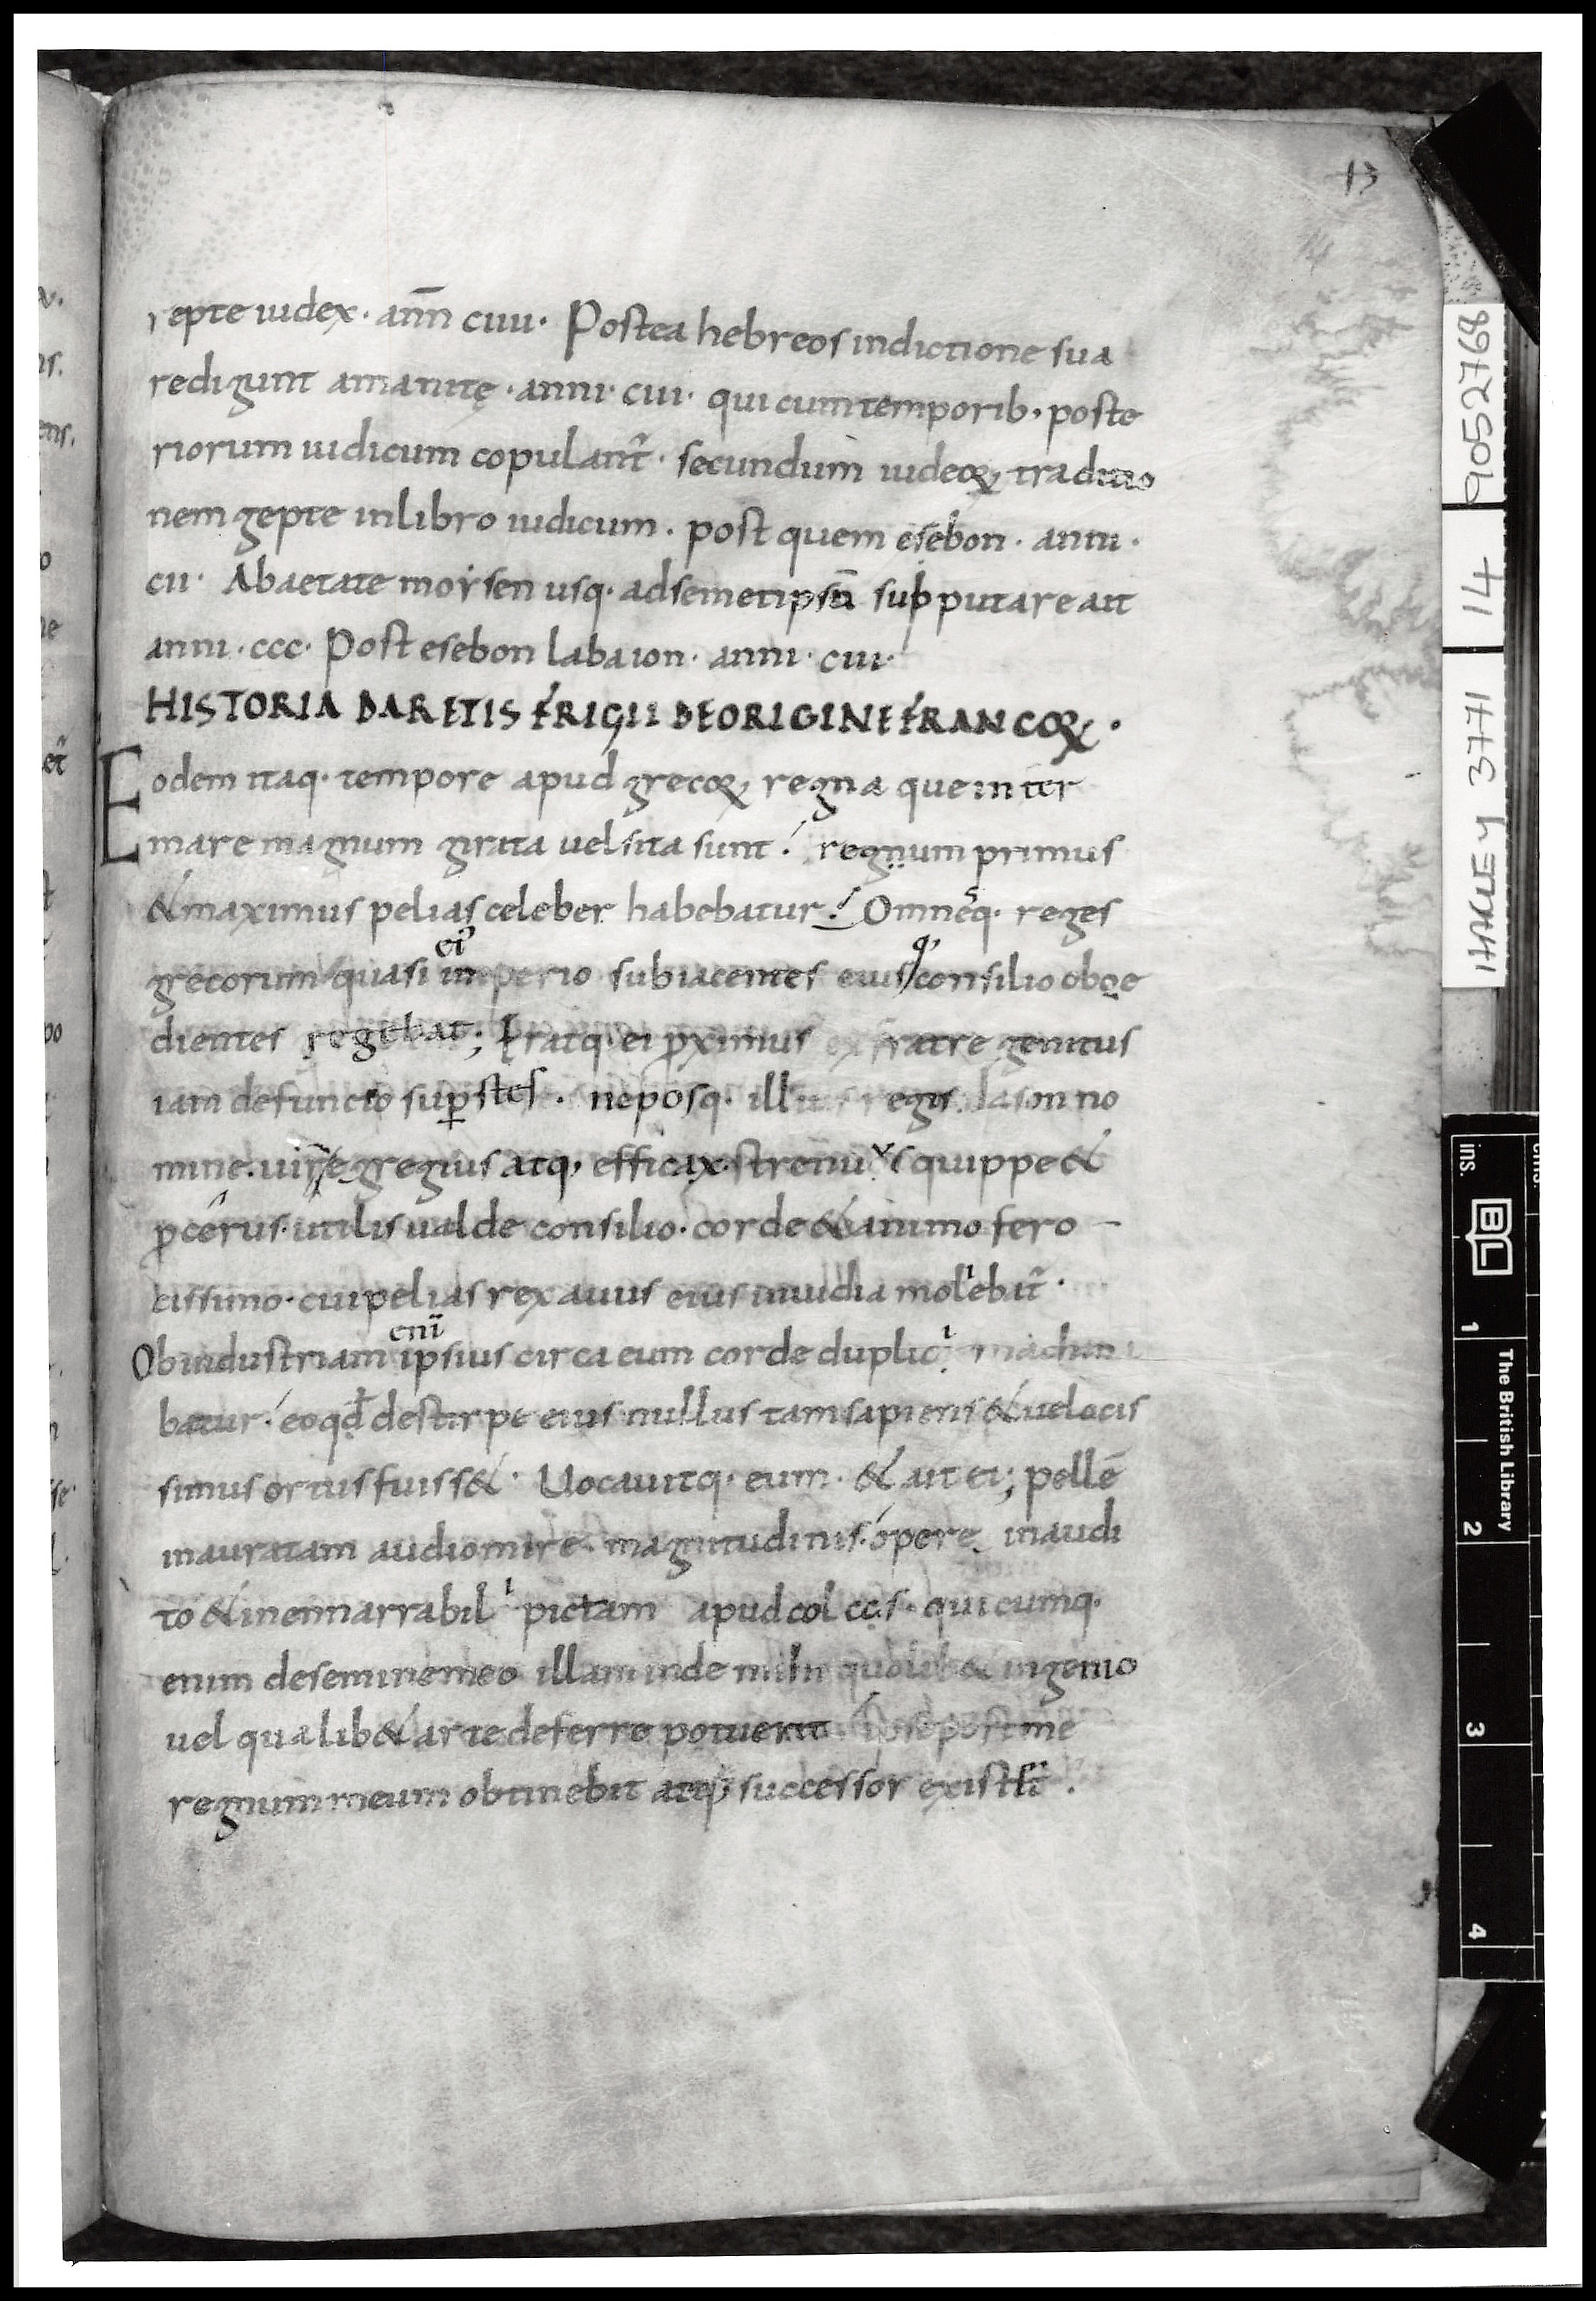 13
14
repte iudex · an̄n cuıı · Postea hebreos indictione sua
redigunt amanitę · anni · cui · qui cum temporib · poste
riorum iudicum copulant̃ · secundum iudeoꝝ traditio
nem gepte in libro iudicum · post quem esebon · anni ·
cii · Ab aetate moẏsen usq · ad semetipsū subputare ait
anni · ccc · Post esebon labaion · anni · cui ·
HISTORIA DARETIS FRIGII DE ORIGINE FRANCOꝝ ·
Eodem itaq · tempore apud grecoꝝ regna que inter
mare magnum girata uel sita sunt ! regnum primus
& maximus pelias celeber habebatur ! Omnesq · reges
ei'
grecorum quasi imperio subiacentes eius q, consilio oboe
dientes regebat ; Eratq · ei p̄ximus ex fratre genitus
iam defuncto suꝑstes · neposq · illius regis Iason no
mine · uir egregius atq · efficax · strenuus quippe &
ꝓcerus · utilis ualde consilio · corde & animo fero
cissimo · cui pelias rex auus eius inuidia moliebat̃ ·
enī
Ob industriam ipsius circa eum corde duplici machina
batur ! eo qđ de stirpe eius nullus tam sapiens & uelocis
simus ortus fuiss& · Uocauitq · eum · & ait ei ; pellē
inauratam audio mire magnitudinis · opere inaudi
to & inennarrabili pictam apud colccs · qui cumq ·
enim de semine meo illam inde mihi quolib& ingenio
uel qualib& arte deferre potuerit ipse post me
regnum meum obtinebit atq; successor existit ·
9052768
14
HARLEY 3771
ins.
cms.
BL
The British Library
1
2
3
4